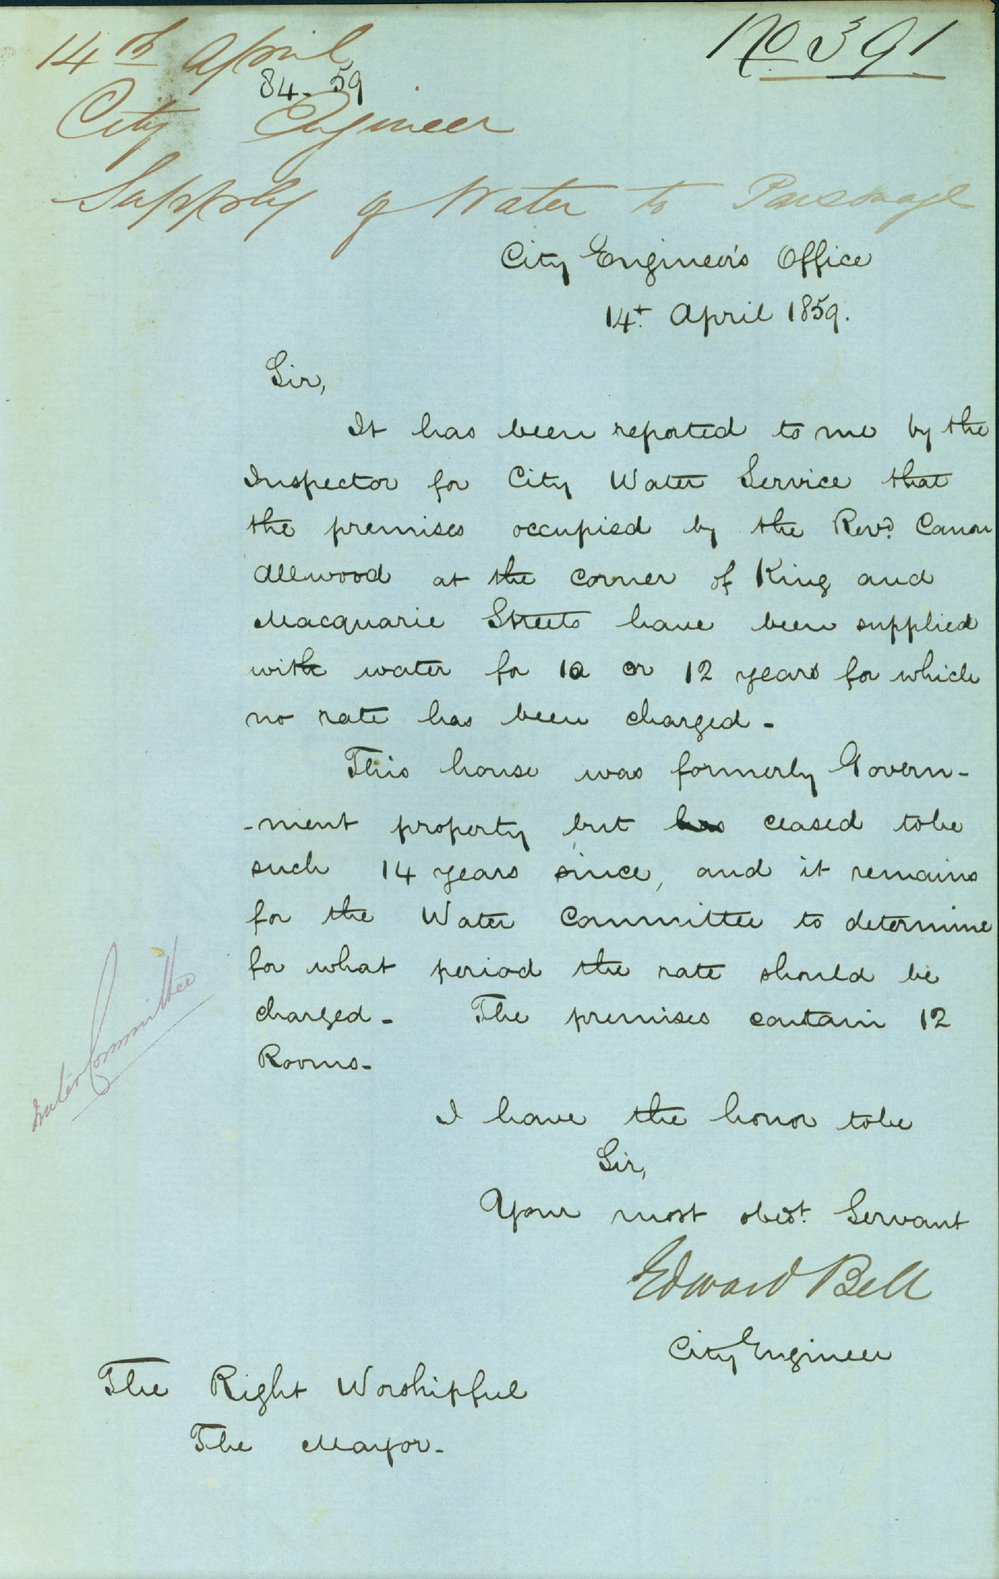 14th April
No 391
84-59
City Engineer
Supply of Water to Parsonage
City Engineer's Office
14t. April 1859.
Sir,
It has been reported to me by the
Inspector for City Water Service that
the premises occupied by the Revd. Canon
Allwood at the corner of King and
Macquarie Streets have been supplied
with water for 10 or 12 years for which
no rate has been charged -
This house was formerly Govern-
-ment property but has ceased to be
such 14 years since, and it remains
for the Water Committee to determine
for what period the rate should be
charged - The premises contain 12
Rooms -
Water Committee
I have the honor to be
Sir,
Your most obedt. Servant
Edward Bell
City Engineer
The Right Worshipful
The Mayor -